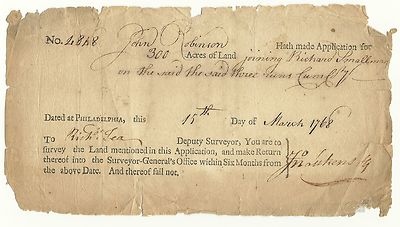 No. 4848 John Robinson Hath made Application for
300 Acres of Land joining Richard
on the said the said three runs
Dated at PHILADELPHIA, this 15th Day of March 1768
To Richd Tea Deputy Surveyor, You are to
survey the Land mentioned in this Application, and make Return
thereof into the Surveyor-General's Office within Six Months from
the above Date. And thereof fail not.
Jno Lukens